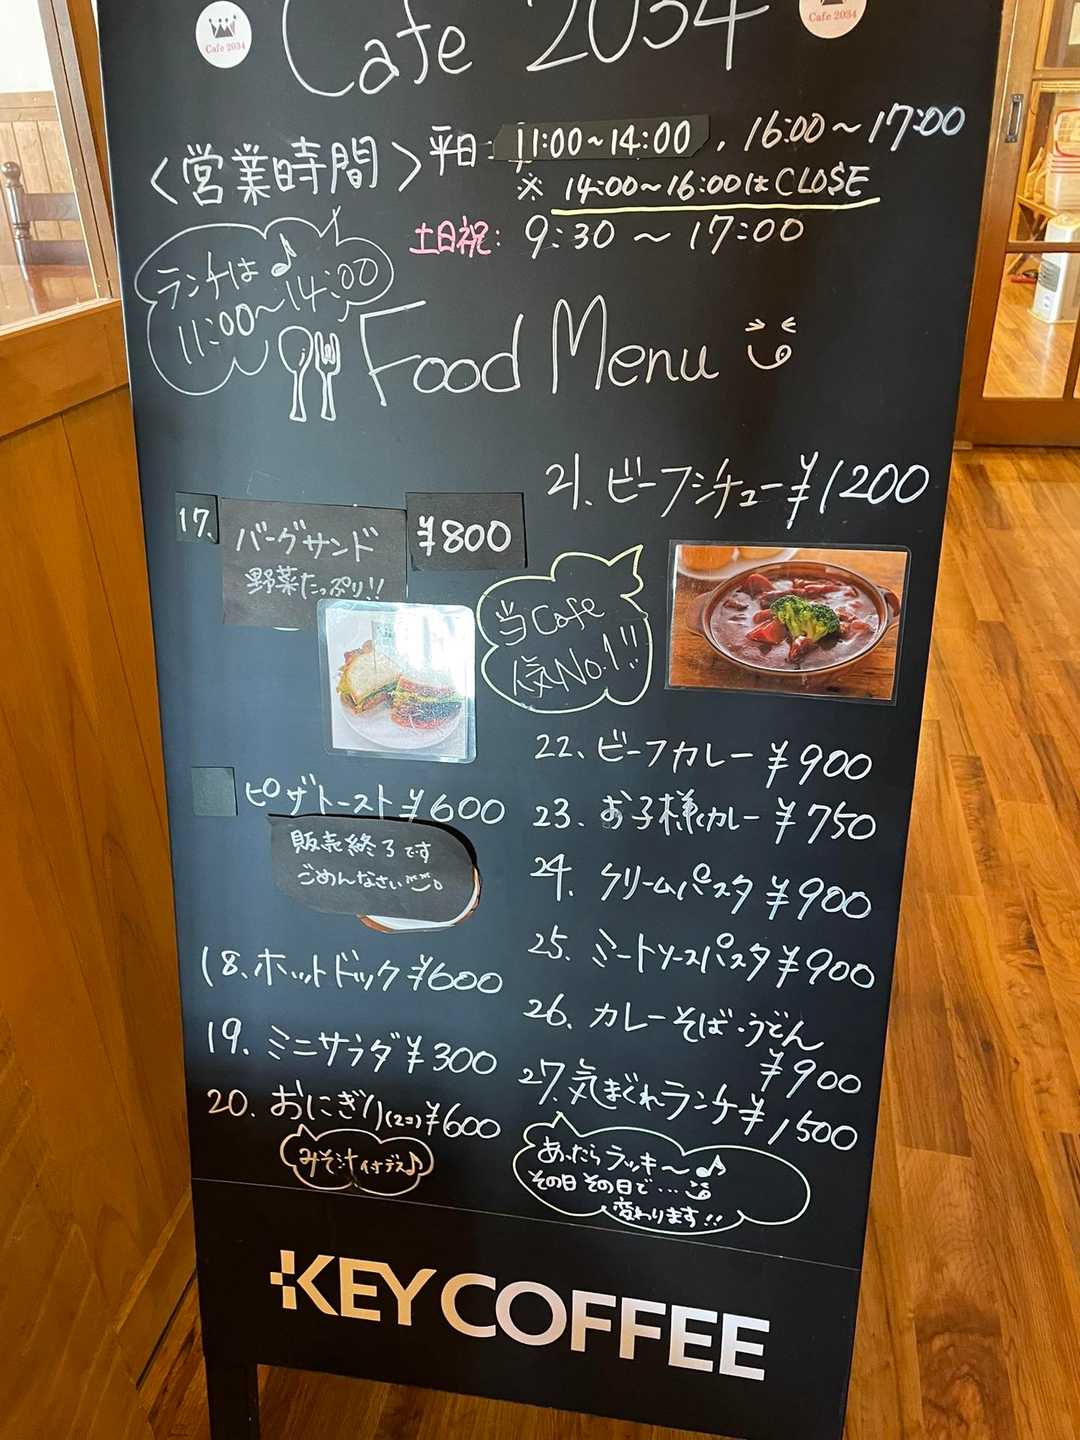 Cafe 2034
Cafe 2034
Cafe 2034
<営業時間> 平日: 11:00~14:00, 16:00~17:00
※ 14:00~16:00はCLOSE
土日祝: 9:30~17:00
ランチは♪
11:00~14:00
Food Menu
17. バーグサンド ¥800
野菜たっぷり!!
ピザトースト ¥600
販売終了です
ごめんなさい
18. ホットドック ¥600
19. ミニサラダ ¥300
20. おにぎり(2コ) ¥600
みそ汁付デス♪
21. ビーフシチュー ¥1200
当Cafe
人気No.1!!
22. ビーフカレー ¥900
23. お子様カレー ¥750
24. クリームパスタ ¥900
25. ミートソースパスタ ¥900
26. カレーそば・うどん
¥900
27. 気まぐれランチ ¥1500
あったらラッキ〜♪
その日その日で…
変わります!!
KEY COFFEE